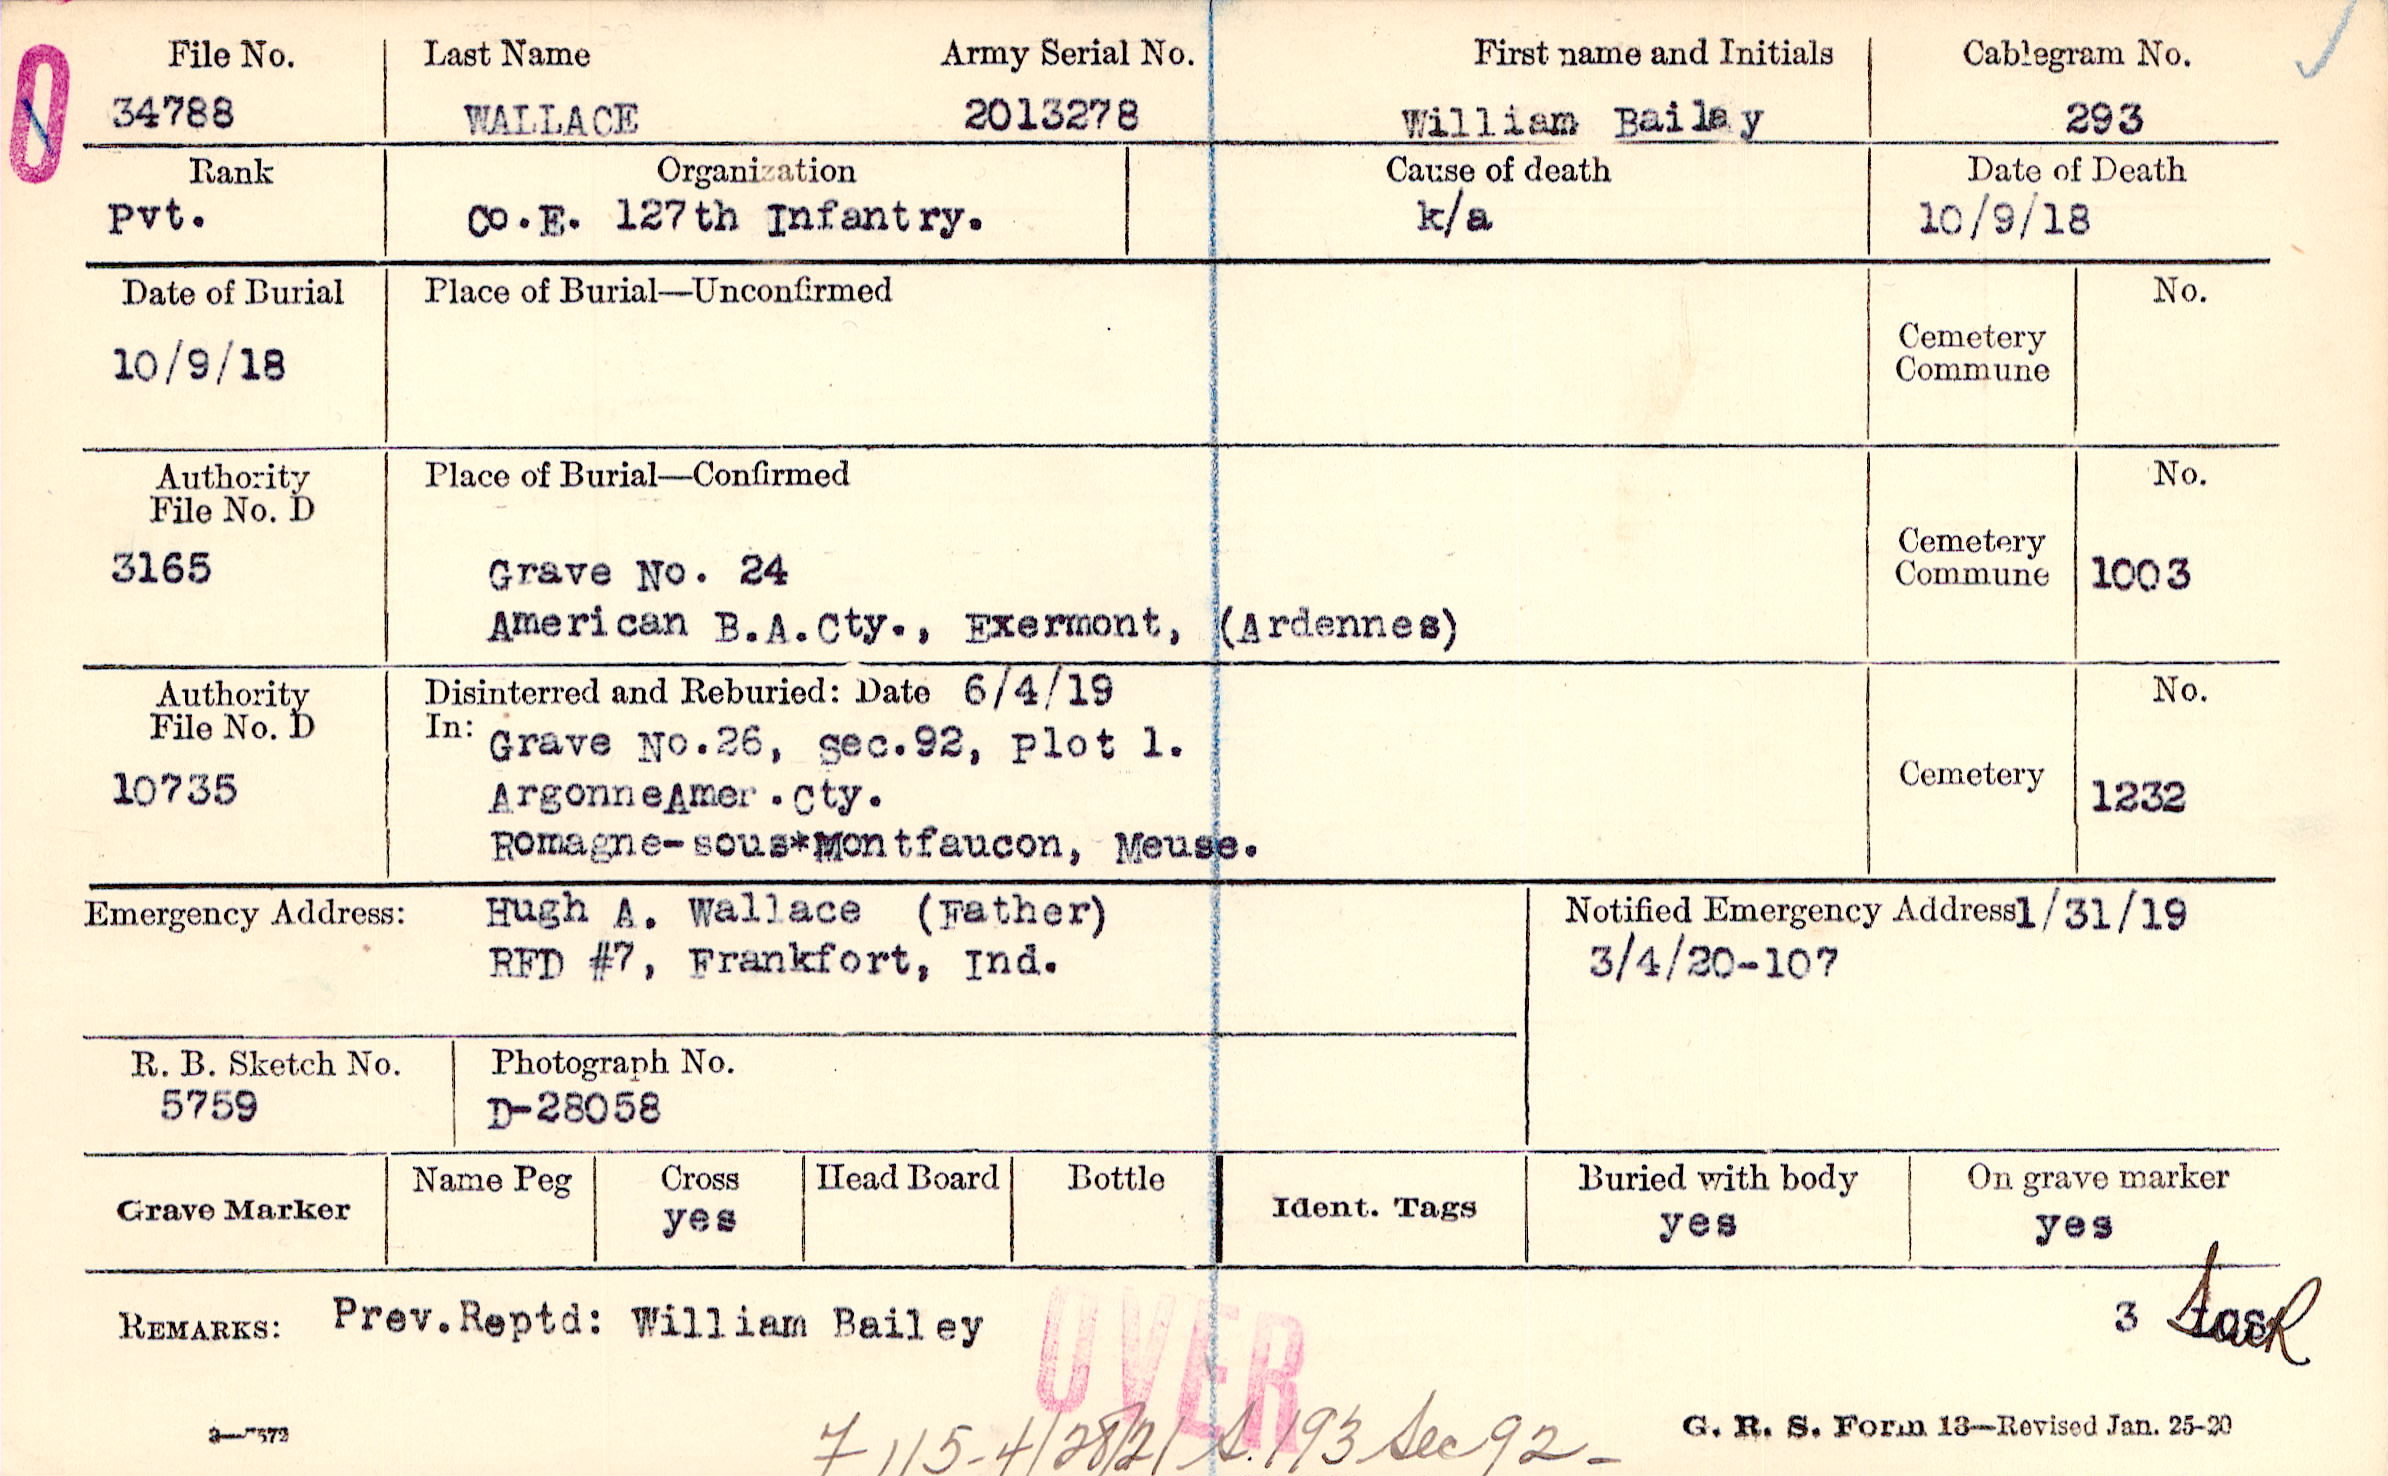 File No. Last Name Army Serial No. First name and Initials Cablegram No.
34788 WALLACE 2013278 William Bailay 293
Rank Organization Cause of death Date of Death
Pvt. Co.E. 127th Infantry. k/a 10/9/18
Date of Burial Place of Burial—Unconfirmed No.
10/9/18 Cemetery
Commune
Authority Place of Burial—Confirmed No.
File No. D
3165 Grave No. 24 Cemetery
Commune 1003
American B.A.Cty., Exermont, (Ardennes)
Authority Disinterred and Reburied: Date 6/4/19 No.
File No. D In: Grave No.26, Sec.92, Plot 1.
10735 ArgonneAmer.Cty. Cemetery 1232
Romagne-sous*Montfaucon, Meuse.
Emergency Address: Hugh A. Wallace (Father) Notified Emergency Address 1/31/19
RFD #7, Frankfort, Ind. 3/4/20-107
R. B. Sketch No. Photograph No.
5759 D-28058
Grave Marker Name Peg Cross Head Board Bottle Ident. Tags Buried with body On grave marker
yes yes yes
REMARKS: Prev.Reptd: William Bailey 3
OVER
115-4/28/21 S.193 Sec 92-
G. R. S. Form 13—Revised Jan. 25-20